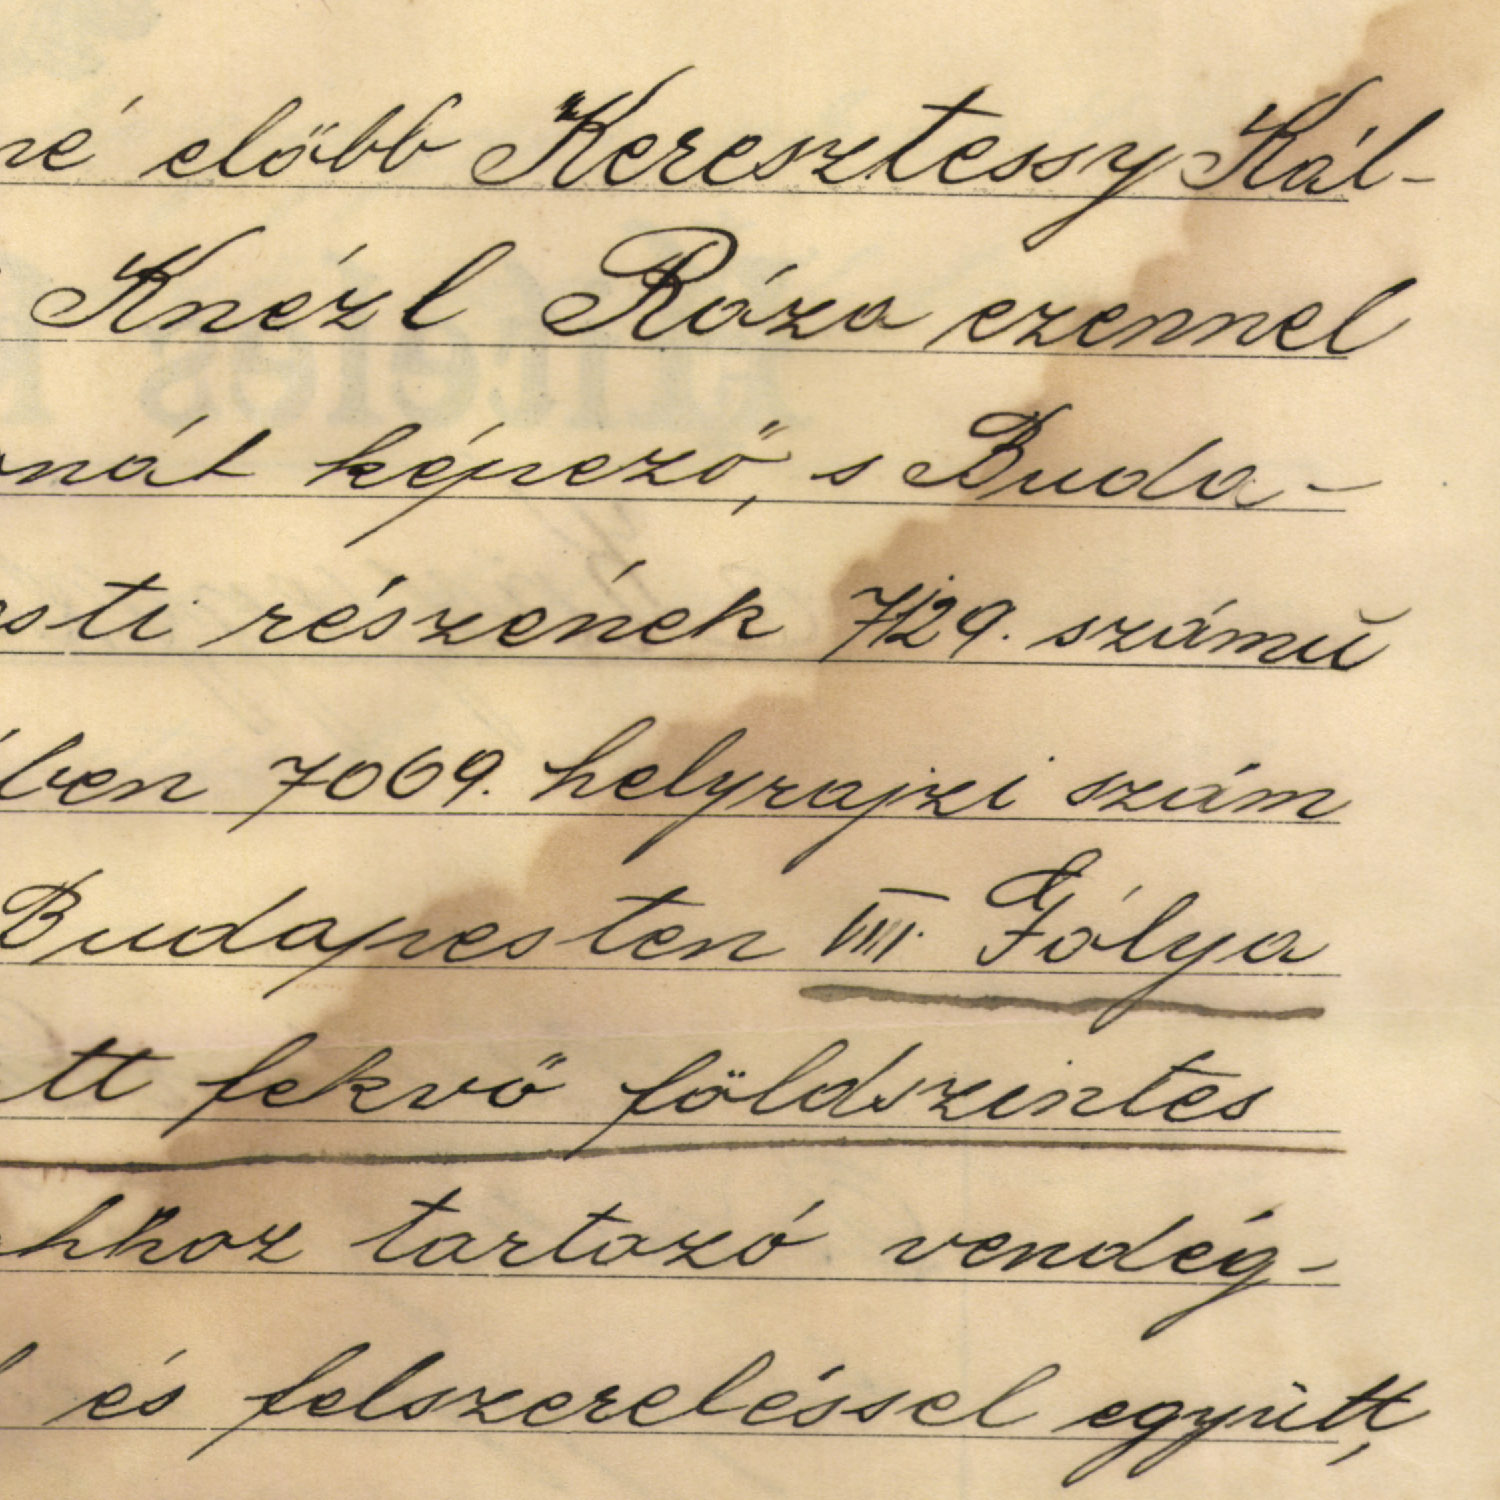 né előbb Keresztessy Kál-
Knézl Róza ezennel
onát képező, s Buda-
esti részének 7129. számú
ben 7069. helyrajzi szám
Budapesten VIII. Fólya
tt fekvő földszintes
hhoz tartozó vendég-
és felszereléssel együtt,